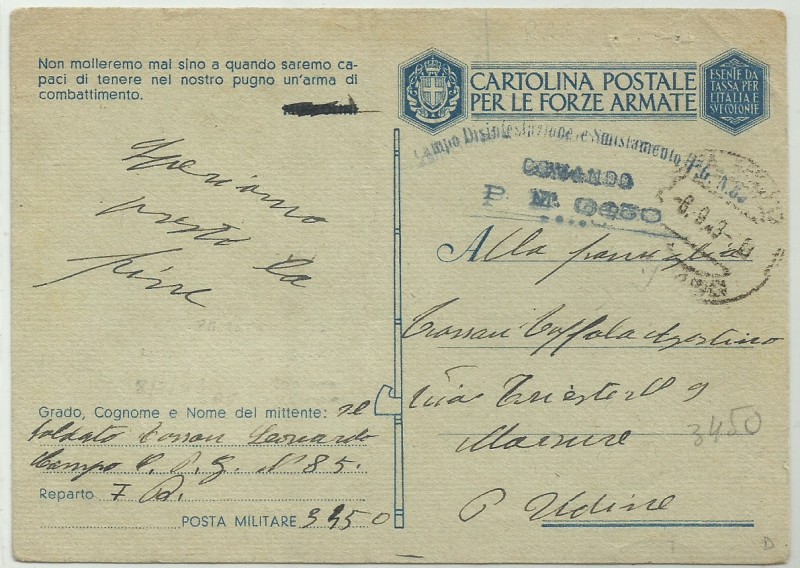 Non molleremo mai sino a quando saremo ca-
paci di tenere nel nostro pugno un'arma di
combattimento.
Speriamo
presto la
fine
Grado, Cognome e Nome del mittente: il
soldato Leonardo
Campo P. G. N° 85.
Reparto 7 B.
POSTA MILITARE 3450
CARTOLINA POSTALE
PER LE FORZE ARMATE
ESENTE DA
TASSA PER
L'ITALIA E
SVE COLONIE
Campo Disinfestazione e Smistamento P.G. N. 85
COMANDO
P. M. 3450
-6.9.43-
Alla famiglia
Agostino
Via Trieste N 9
P Udine
3450
D